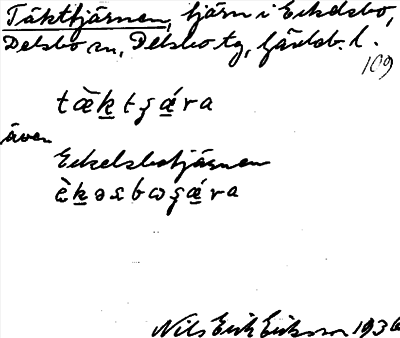 Täkttjärnen, tjärn i Eckelsbo,
Delsbo sn, Delsbo tg, Gävleb. l.
109
tæ̀k̲tʂǽra
även
Eckelsbotjärnen
è̲k̲əsbωʂǽra
Nils Erik Eriksson 1936